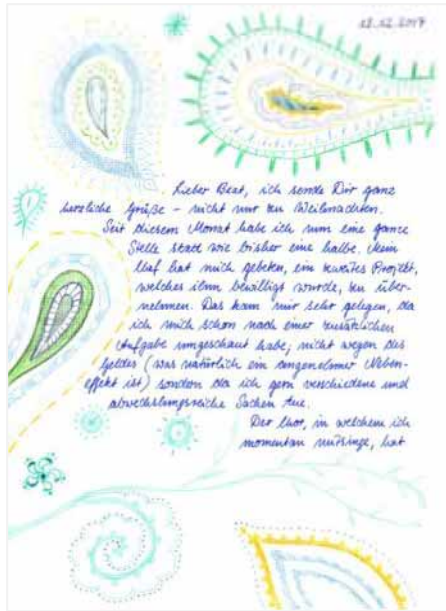 12.12.2017
Lieber Beat, ich sende Dir ganz
herzliche Grüße – nicht nur zu Weihnachten.
Seit diesem Monat habe ich nun eine ganze
Stelle statt wie bisher eine halbe. Mein
Chef hat mich gebeten, ein zweites Projekt,
welches ihm bewilligt wurde, zu über-
nehmen. Das kam mir sehr gelegen, da
ich mich schon nach einer zusätzlichen
Aufgabe umgeschaut habe; nicht wegen des
Geldes (was natürlich ein angenehmer Neben-
effekt ist) sondern da ich gern verschiedene und
abwechslungsreiche Sachen tue.
Der Chor, in welchem ich
momentan mitsinge, hat